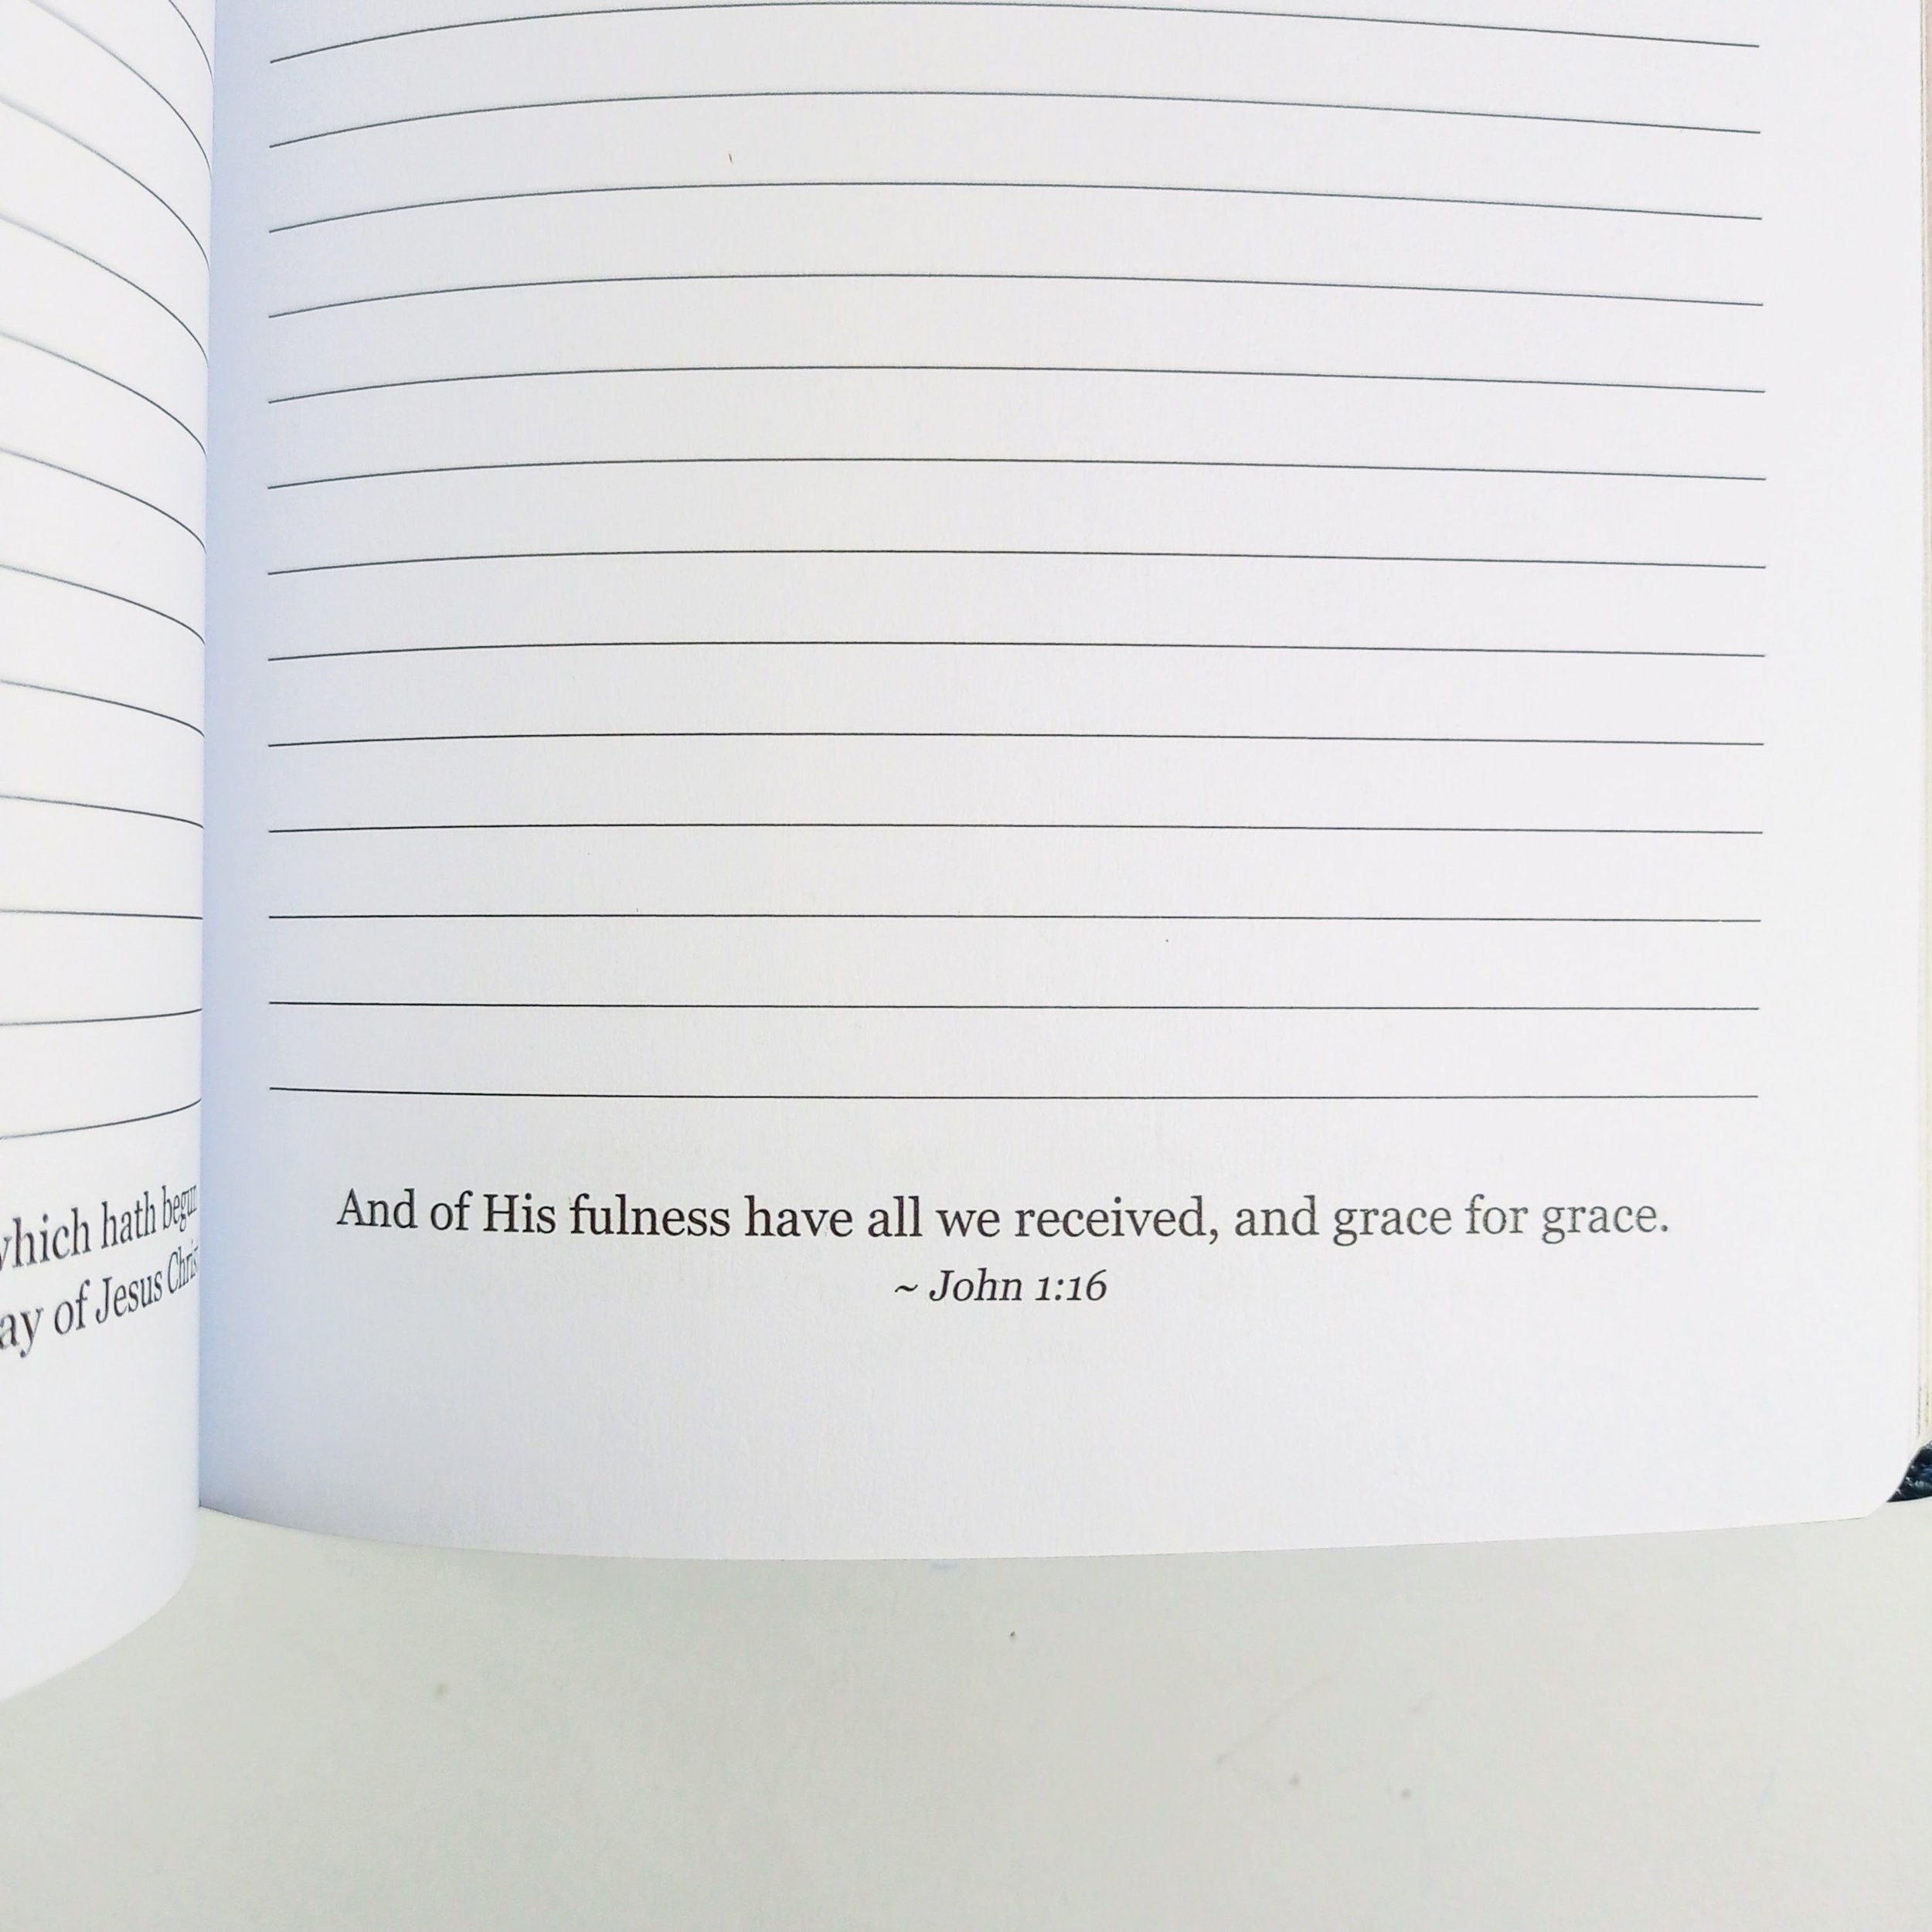 which hath begun
ay of Jesus Christ
And of His fulness have all we received, and grace for grace.
~ John 1:16